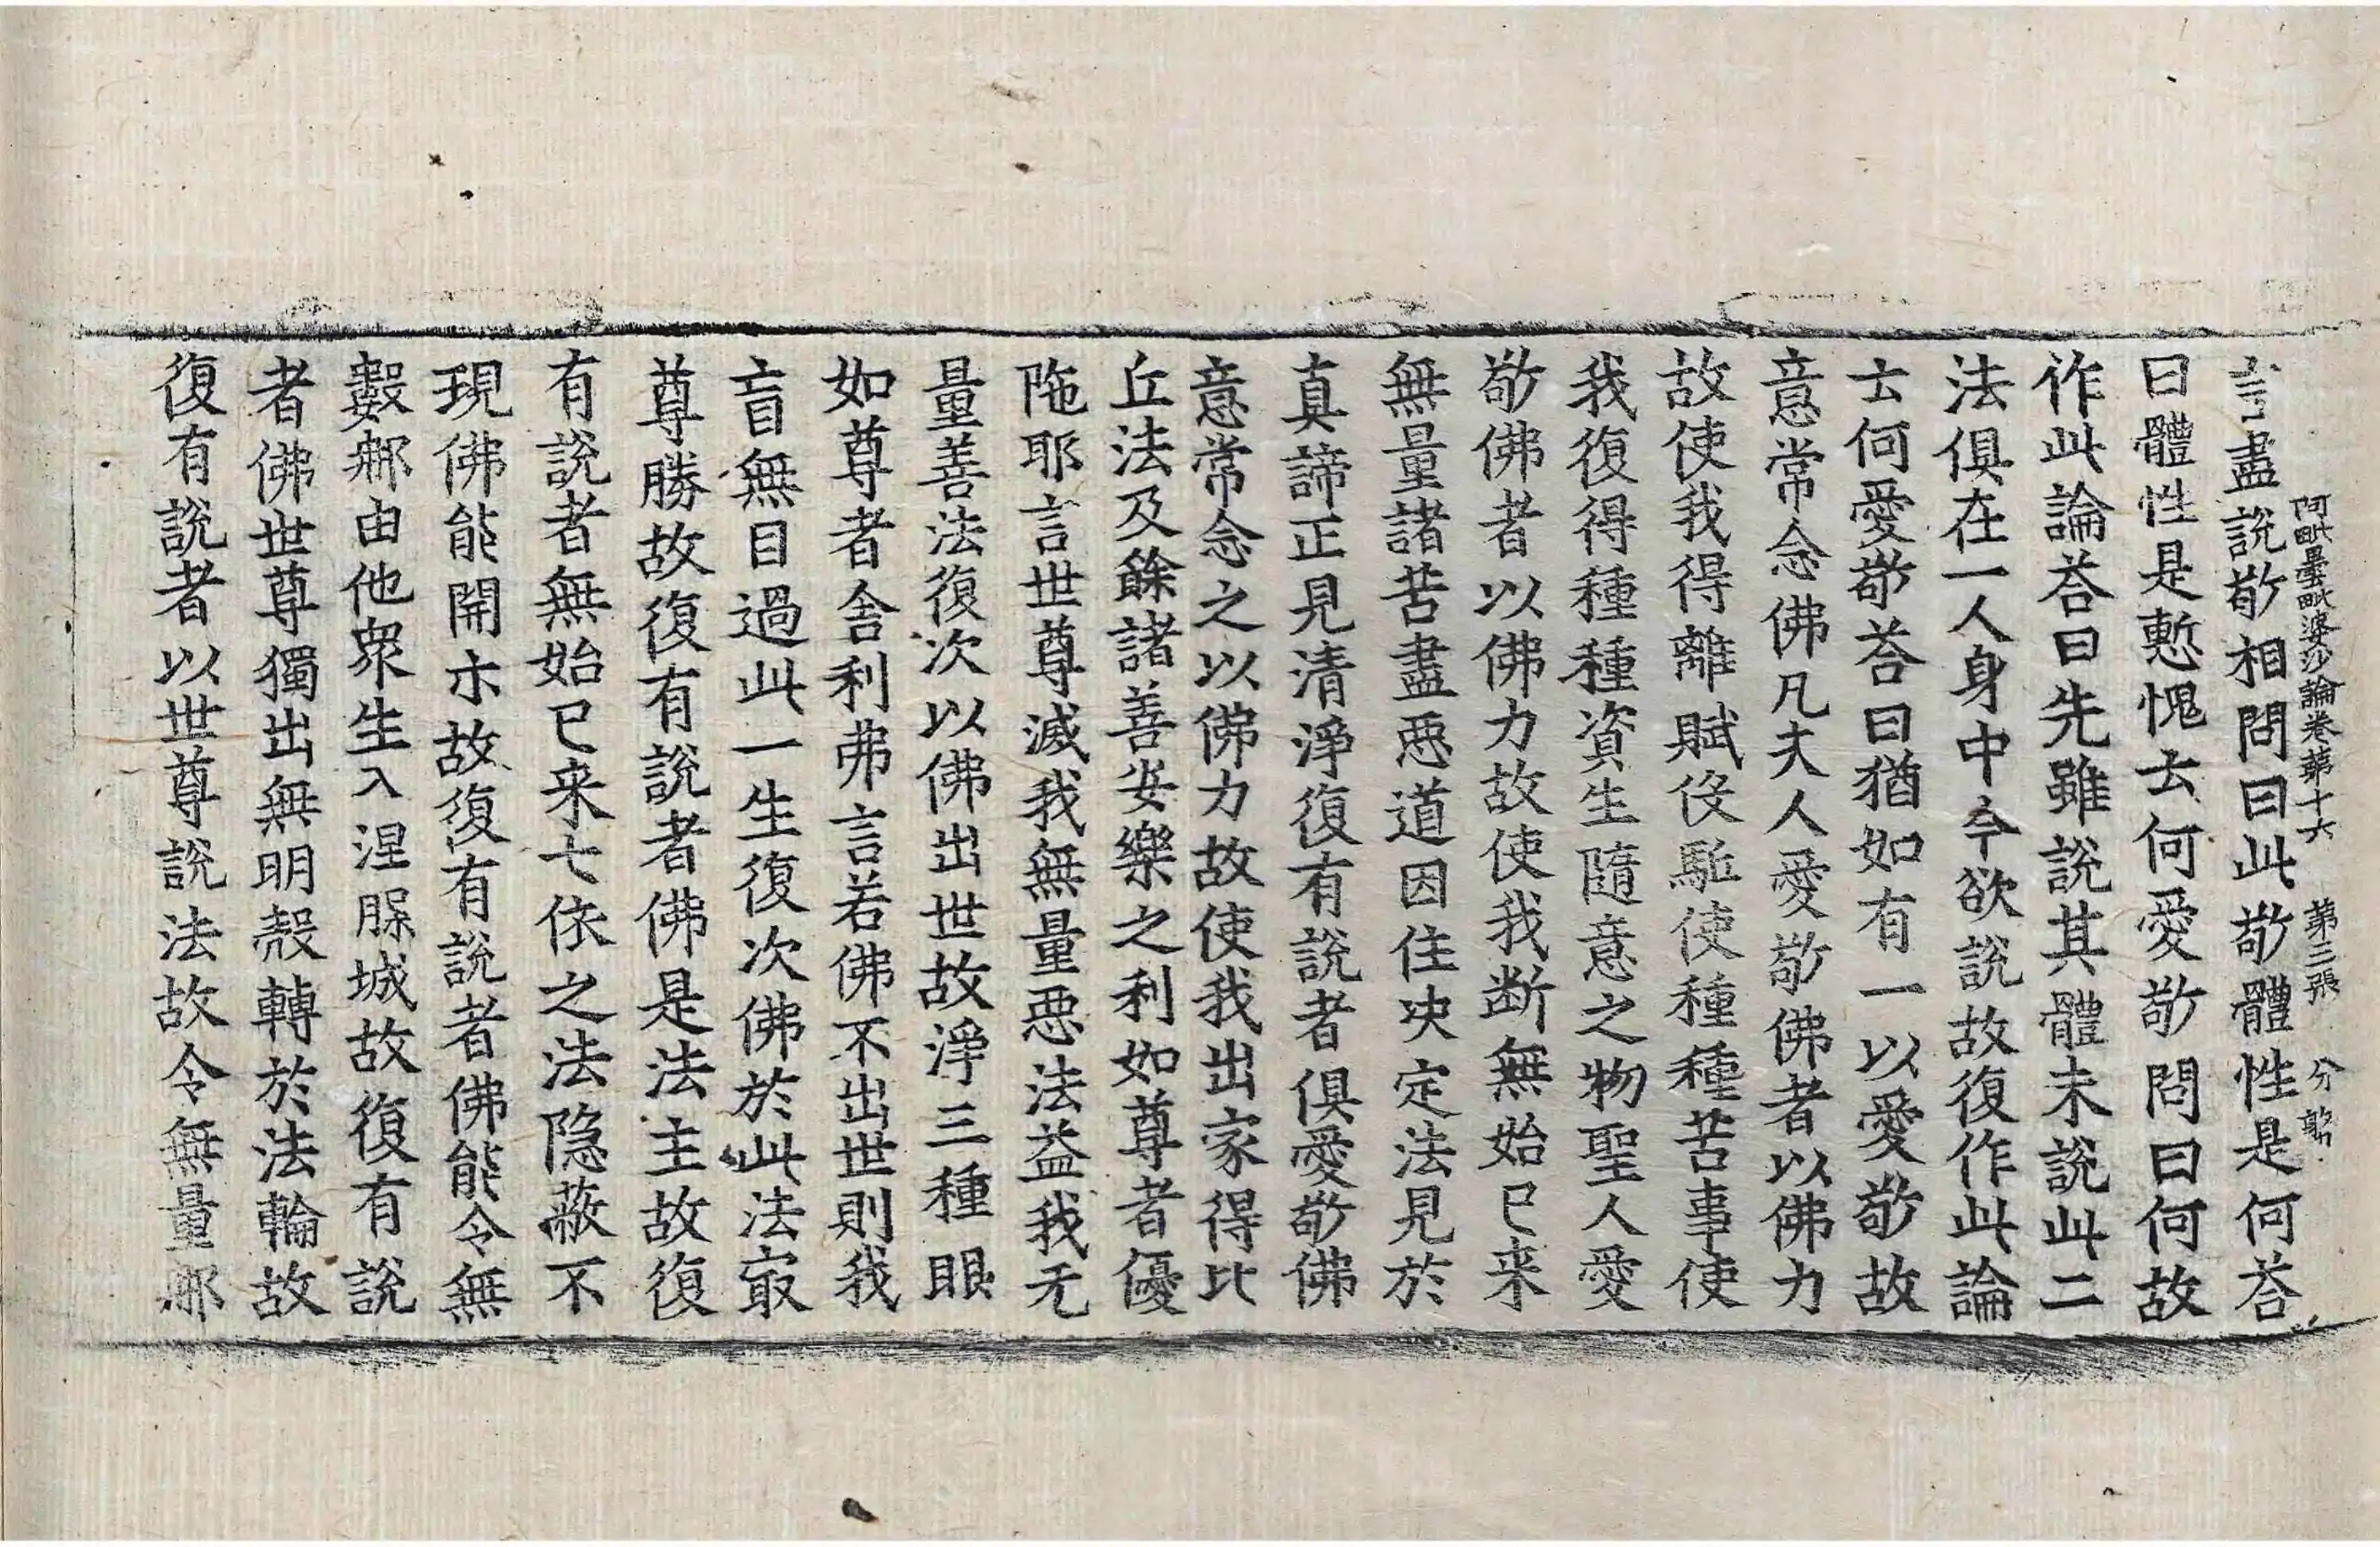 阿毗曇毗婆沙論卷第十六 第三張 分
言盡說敬相問曰此敬體性是何荅
曰體性是慙愧云何愛敬問曰何故
作此論荅曰先雖說其體未說此二
法俱在一人身中今欲說故復作此論
云何愛敬荅曰猶如有一以愛敬故
意常念佛凡夫人愛敬佛者以佛力
故使我得離賦役駈使種種苦事使
我復得種種資生隨意之物聖人愛
敬佛者以佛力故使我断無始已来
無量諸苦盡惡道因住决定法見於
真諦正見清淨復有說者俱愛敬佛
意常念之以佛力故使我出家得比
丘法及餘諸善安樂之利如尊者優
陁耶言世尊滅我無量惡法益我无
量善法復次以佛出世故淨三種眼
如尊者舍利弗言若佛不出世則我
盲無目過此一生復次佛於此法㝡
尊勝故復有說者佛是法主故復
有說者無始已来七依之法隐蔽不
現佛能開示故復有說者佛能令無
數𨙻由他衆生入涅槃城故復有說
者佛世尊獨出無明㲉轉於法輪故
復有說者以世尊說法故令無量𨙻